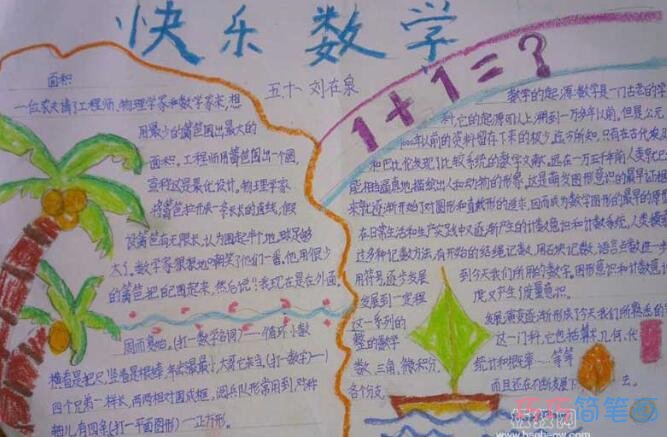 快乐数学
1+1=？
面积
五十 刘在泉
一位农夫请了工程师、物理学家和数学家来，想
用最少的篱笆围出最大的
面积。工程师用篱笆围出一个圆，
宣称这是最优设计。物理学家
将篱笆拉开成一条长长的直线，假
设篱笆有无限长，认为围起半个地球足够
大了。数学家狠狠地嘲笑了他们一番。他用很少
的篱笆把自己围起来，然后说：我现在是在外面。
周而复始。(打一数学名词)——循环小数
四个兄弟一样长，两两相对围成框，
有四条(打一平面图形)一正方形。
数学的起源：数学是一门古老的学
科，它的起源可以上溯到一万多年以前，但是公元
1000年以前的资料留存下来的极少。迄今所知，只有在古代埃及
和巴比伦发现了比较系统的数学文献。远在一万五千年前人类就已
能相当逼真地描绘出人和动物的形象。这是萌发图形意识的最早证据
来就逐渐开始了对图形和直线形的追求，因而成为数学图形的最早的原型
在日常生活和生产实践中又逐渐产生的计数意识和计数系统，人类摸
过多种记数方法，有开始的结绳记数，用石块记数，语言点数进一步
用符号，逐步发展
到今天我们所用的数字。图形意识和计数意识
发展到一定程
度又产生了度量意识。
这一系列的
发展演变逐渐形成了今天我们所熟悉的
整的数学
这一门科，它包括算术、几何、代
数、三角、微积分、
统计和概率……等等
各个分支
而且还在不断发展下去。